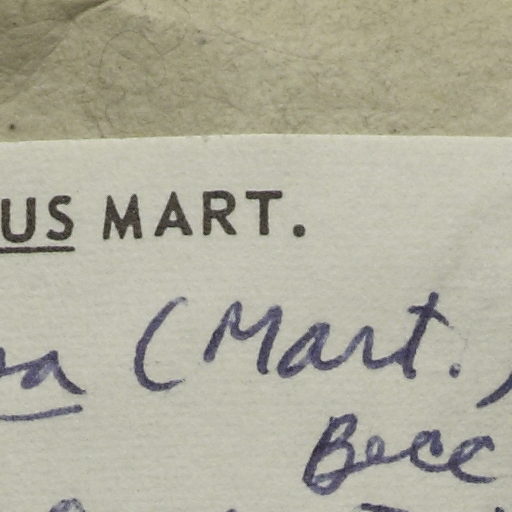 US MART.
a (Mart.)
Becc